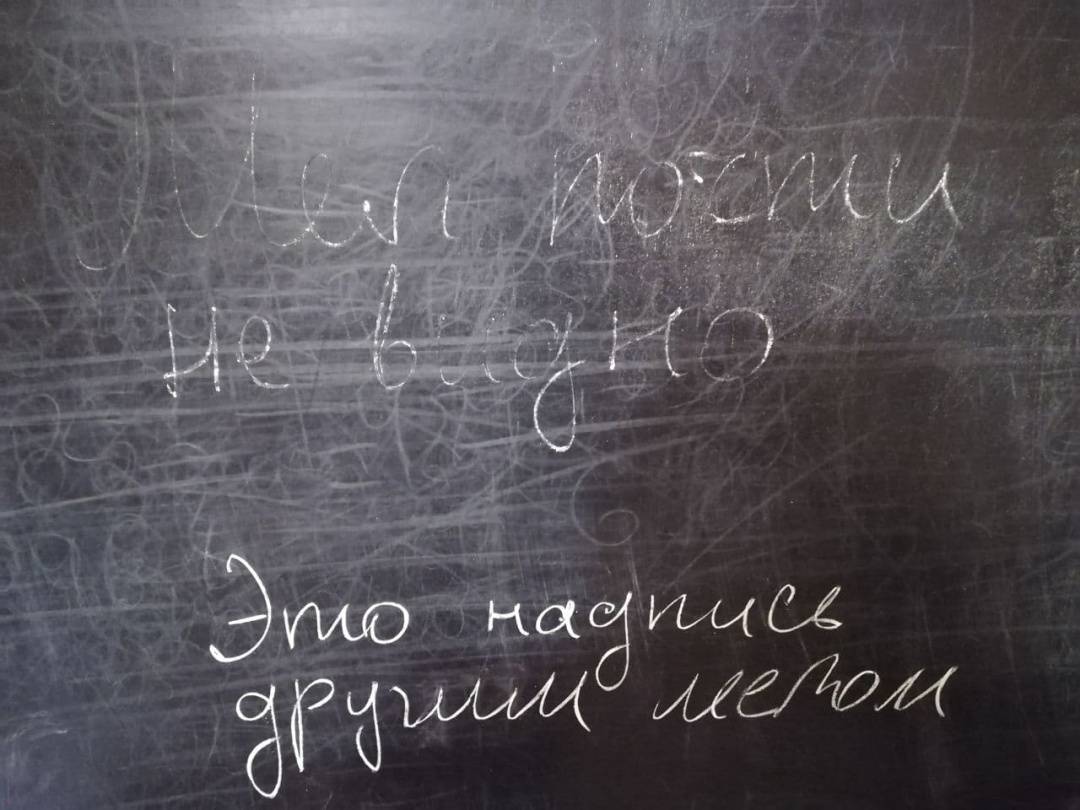 Мел почти
не видно
Это надпись
другим мелом